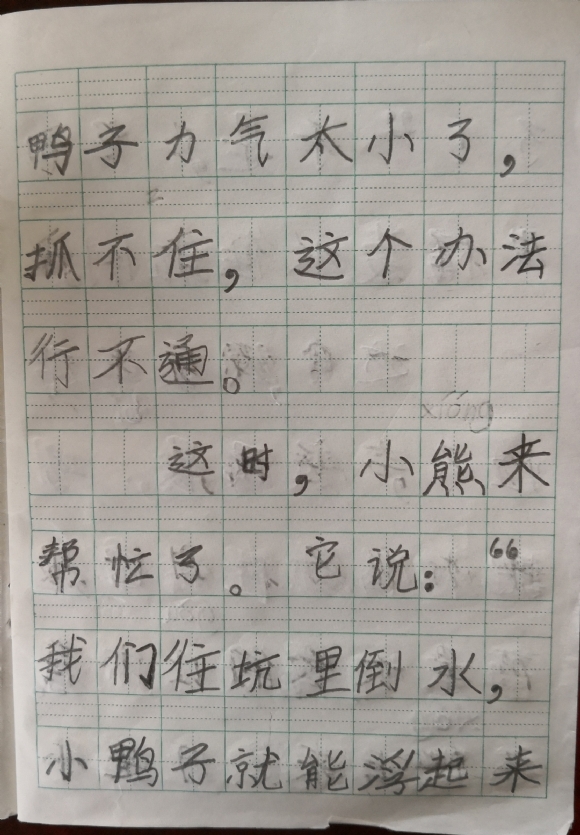 鸭子力气太小了，
抓不住，这个办法
行不通。
xióng
这时，小熊来
帮忙了。它说：“
我们往坑里倒水，
小鸭子就能浮起来